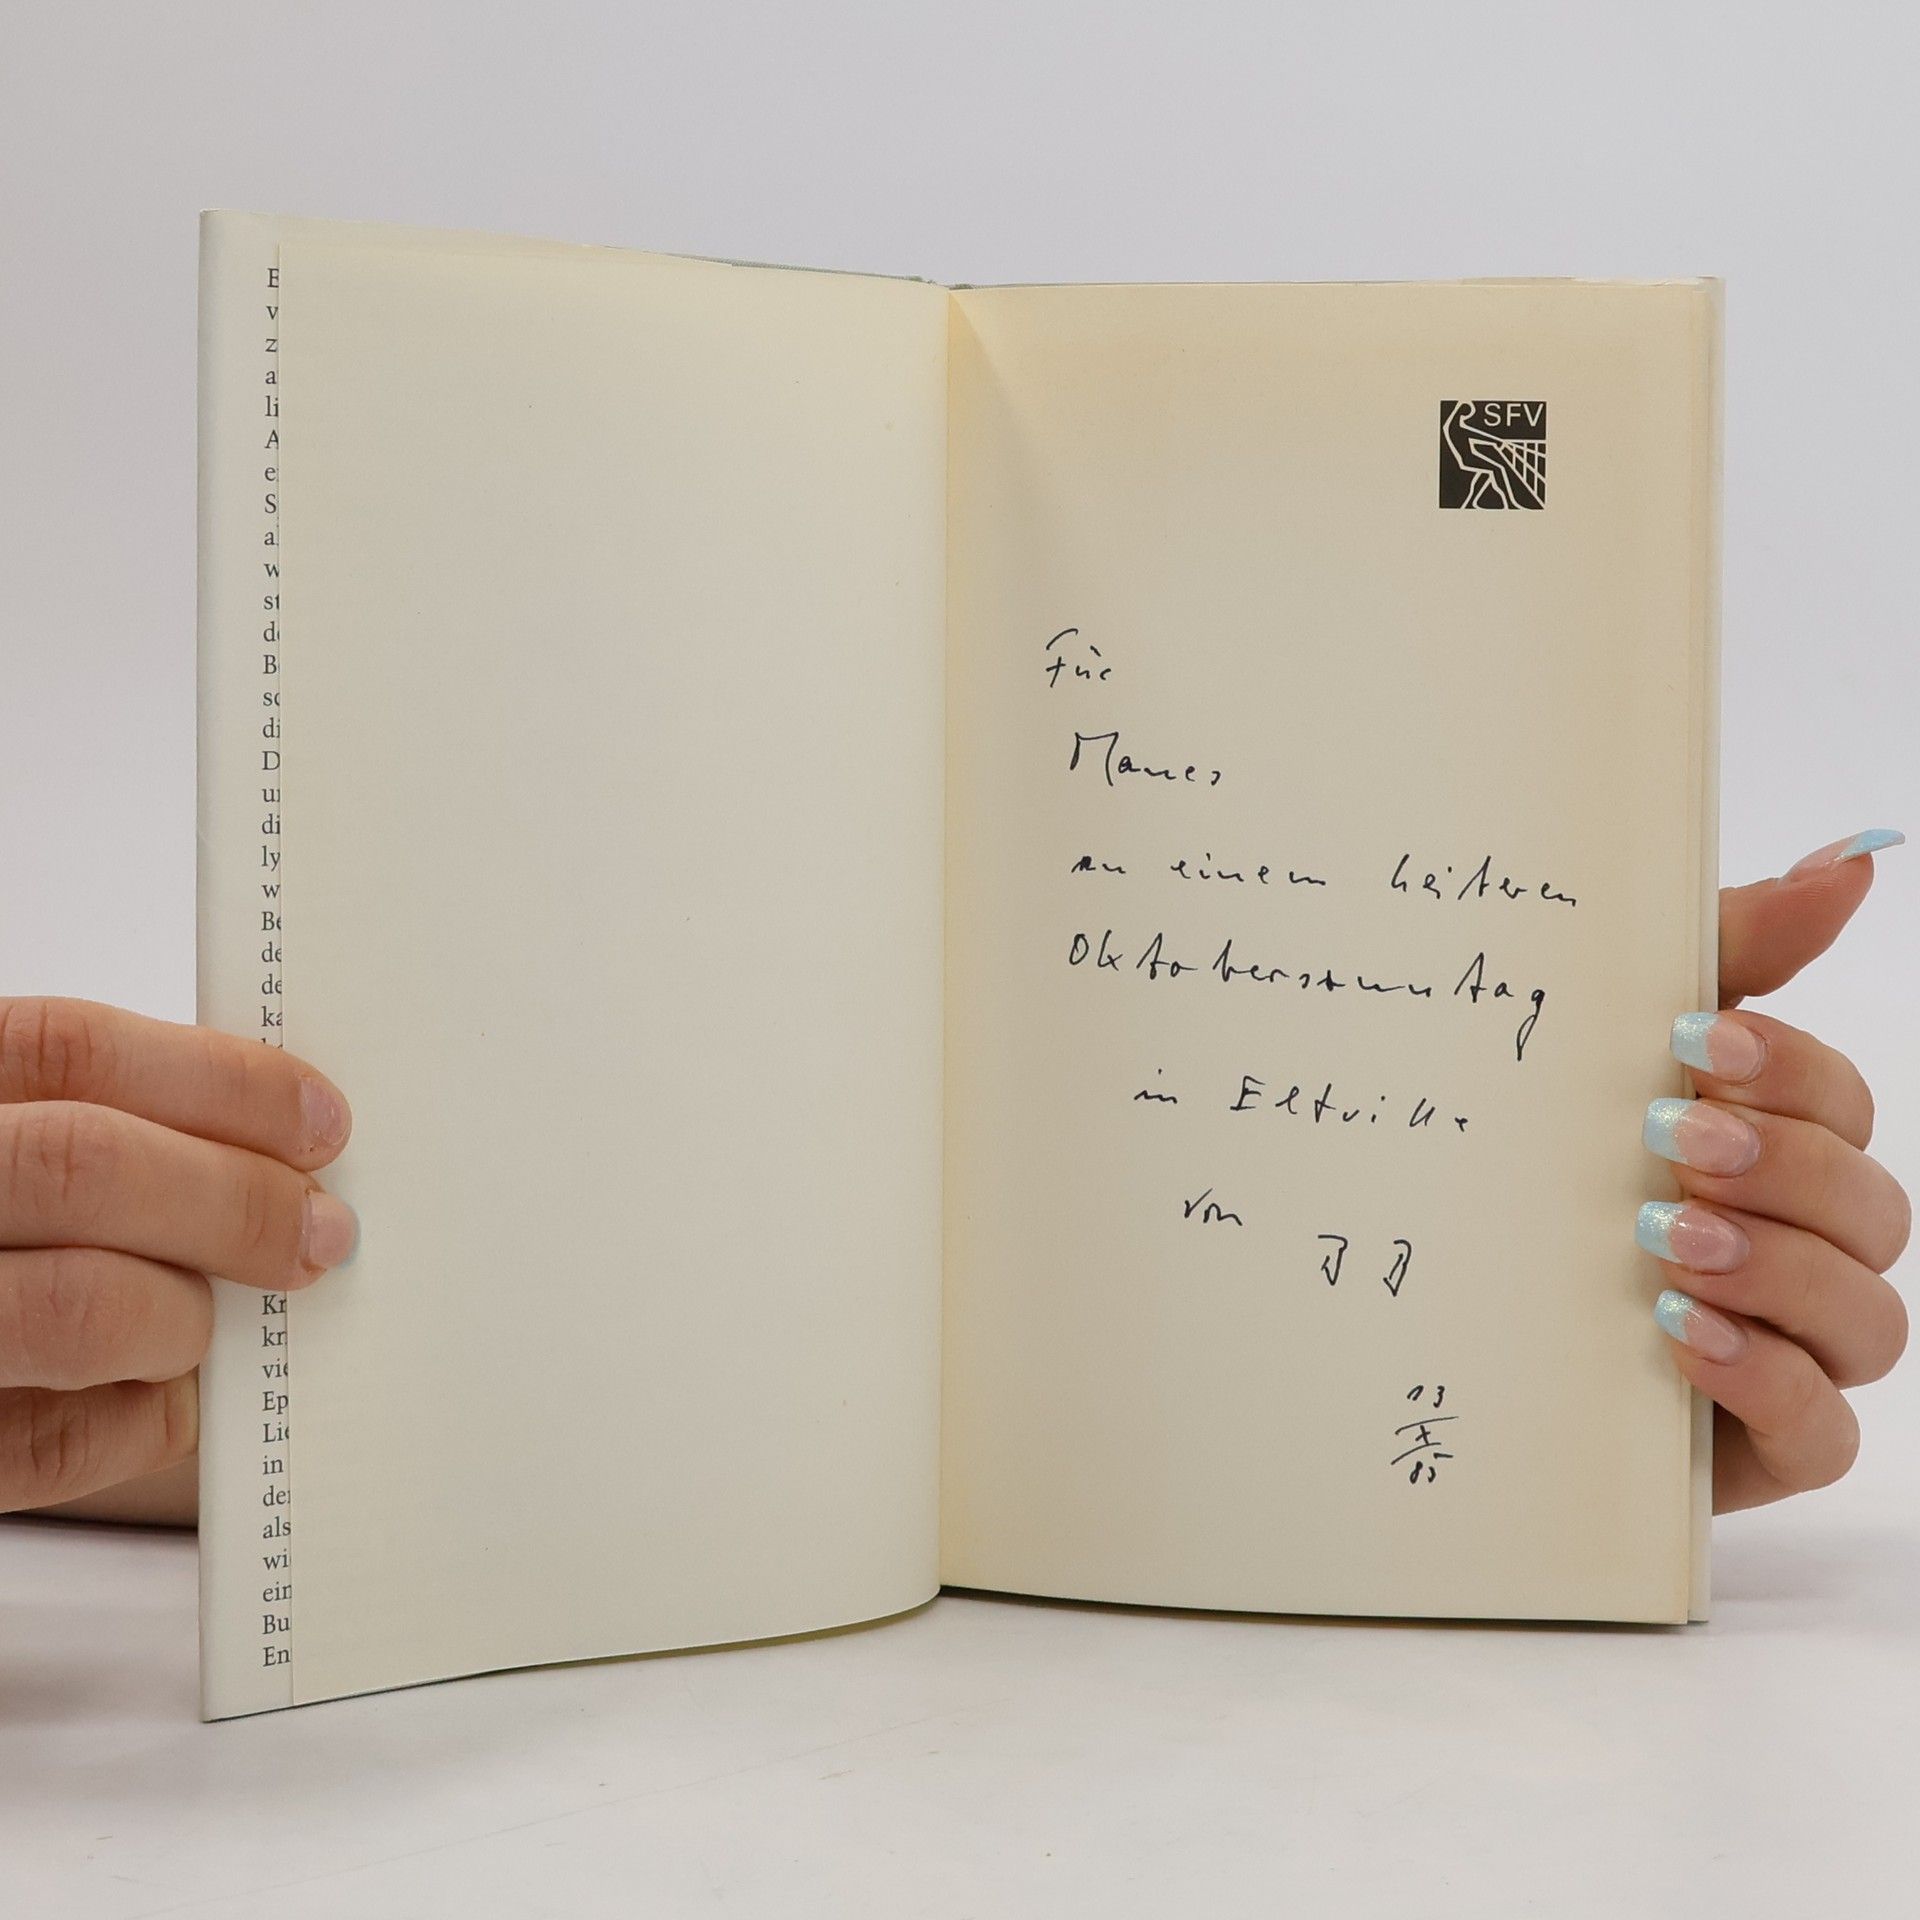 E
v
z
a
li
A
e
S
al
w
st
de
B
so
di
D
un
di
ly
w
Be
de
de
ka
Kr
kr
vie
Ep
Lie
in
der
als
wi
ein
Bu
En
SFV
Für
Manes
an einem heiteren
Oktobersonntag
in Eltville
von
13
X
85